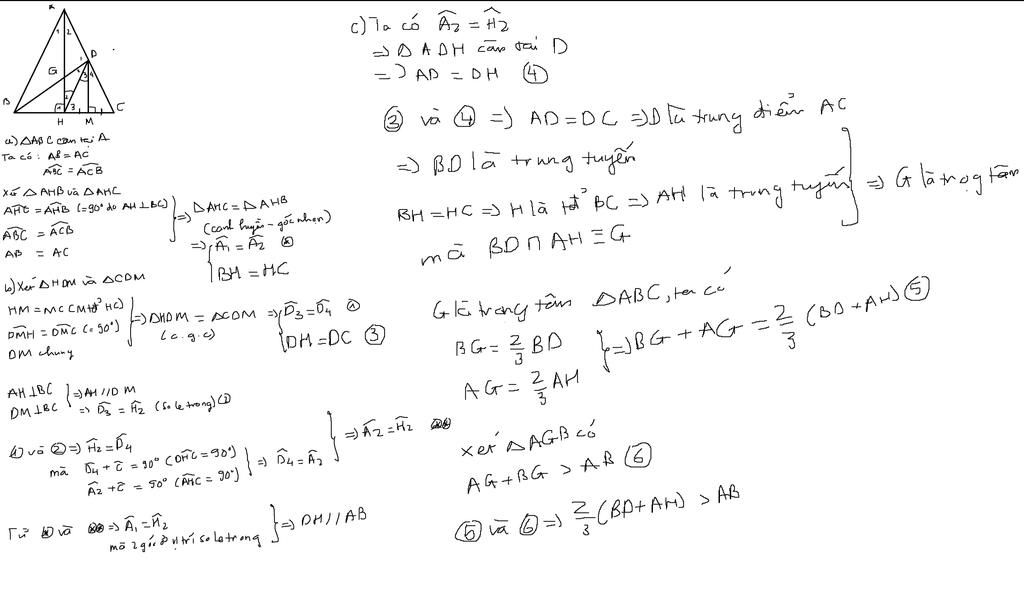 A
1 2
D
G
1
2
3 4
B
1
2
3
C
H M
a) △ABC cân tại A
Ta có: AB = AC
ABC^ = ACB^
Xét △AHB và △AHC
AHC^ = AHB^ (=90° do AH⊥BC)
ABC^ = ACB^
AB = AC
=> △AHC = △AHB
(cạnh huyền - góc nhọn)
=> A1^ = A2^ (*)
BH = HC
b) Xét △HDM và △CDM
HM = MC (M tđ HC)
DMH^ = DMC^ (=90°)
DM chung
=> △HDM = △CDM
(c.g.c)
=> D3^ = D4^ ①
DH = DC ③
AH⊥BC
DM⊥BC
=> AH // DM
=> D3^ = H2^ (so le trong) (2)
① và ② => H2^ = D4^
mà D4^ + C^ = 90° (DHC^ = 90°)
A2^ + C^ = 90° (AHC^ = 90°)
=> D4^ = A2^
=> A2^ = H2^ (**)
Từ (*) và (**) => A1^ = H2^
mà 2 góc ở vị trí so le trong
=> DH // AB
c) Ta có A2^ = H2^
=> △ADH cân tại D
=> AD = DH ④
③ và ④ => AD = DC => D là trung điểm AC
=> BD là trung tuyến
BH = HC => H là tđ BC => AH là trung tuyến
mà BD ∩ AH ≡ G
=> G là trọg tâm
G là trọng tâm △ABC, ta có
BG = 2/3 BD
AG = 2/3 AH
=> BG + AG = 2/3 (BD + AH) ⑤
Xét △AGB có
AG + BG > AB ⑥
⑤ và ⑥ => 2/3 (BD + AH) > AB